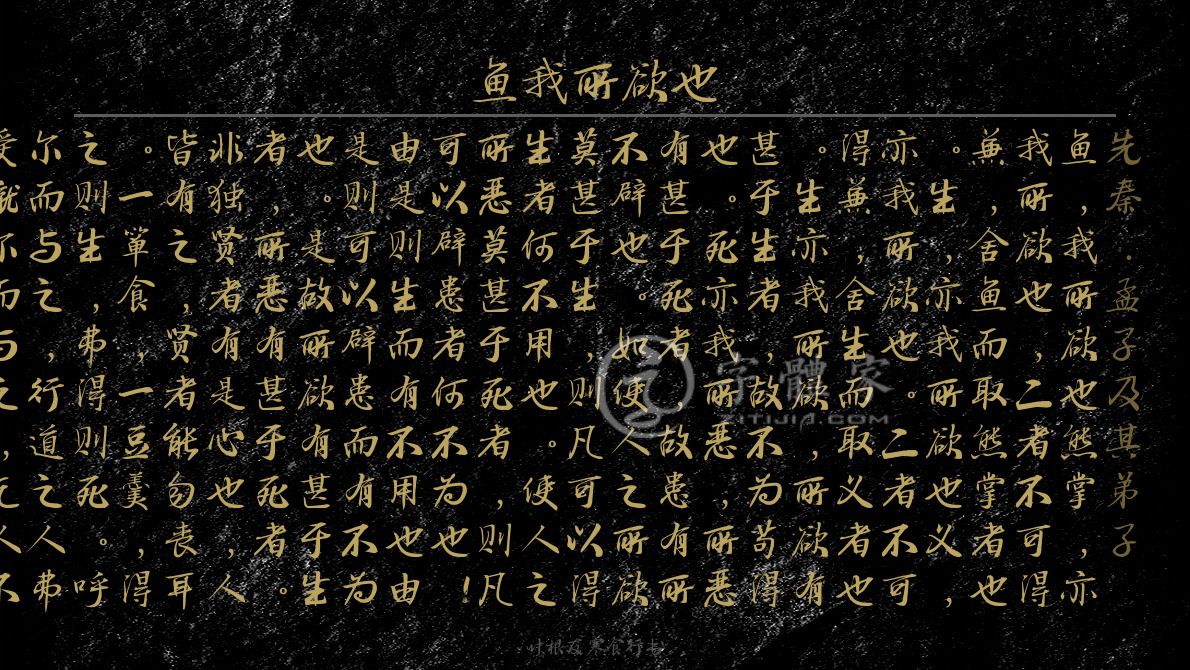 鱼我所欲也
先秦·孟子及其弟子
鱼，我所欲也熊掌，亦
我所欲也，二者不可得
兼，舍鱼而取熊掌者也
。生，亦我所欲也义，
亦我所欲也。二者不可
得兼，舍生而取义者也
。生亦我所欲，所欲有
甚于生者，故不为苟得
也。死亦我所恶，所恶
有甚于死者，故患有所
不辟也。如使人之所欲
莫甚于生，则凡可以得
生者何不用也。使人之
所恶莫甚于死者，则凡
可以辟患者何不为也！
由是则生而有不用也由
是则可以辟患而有不为
也。是故所欲有甚于生
者，所恶有甚于死者。
非独贤者有是心也，人
皆有之，贤者能勿丧耳
。一箪食，一豆羹，得
之则生，弗得则死。呼
尔而与之，行道之人弗
受蹴尔而与之，乞人不
字體家
ZITIJIA.COM
叶根友寒食行书